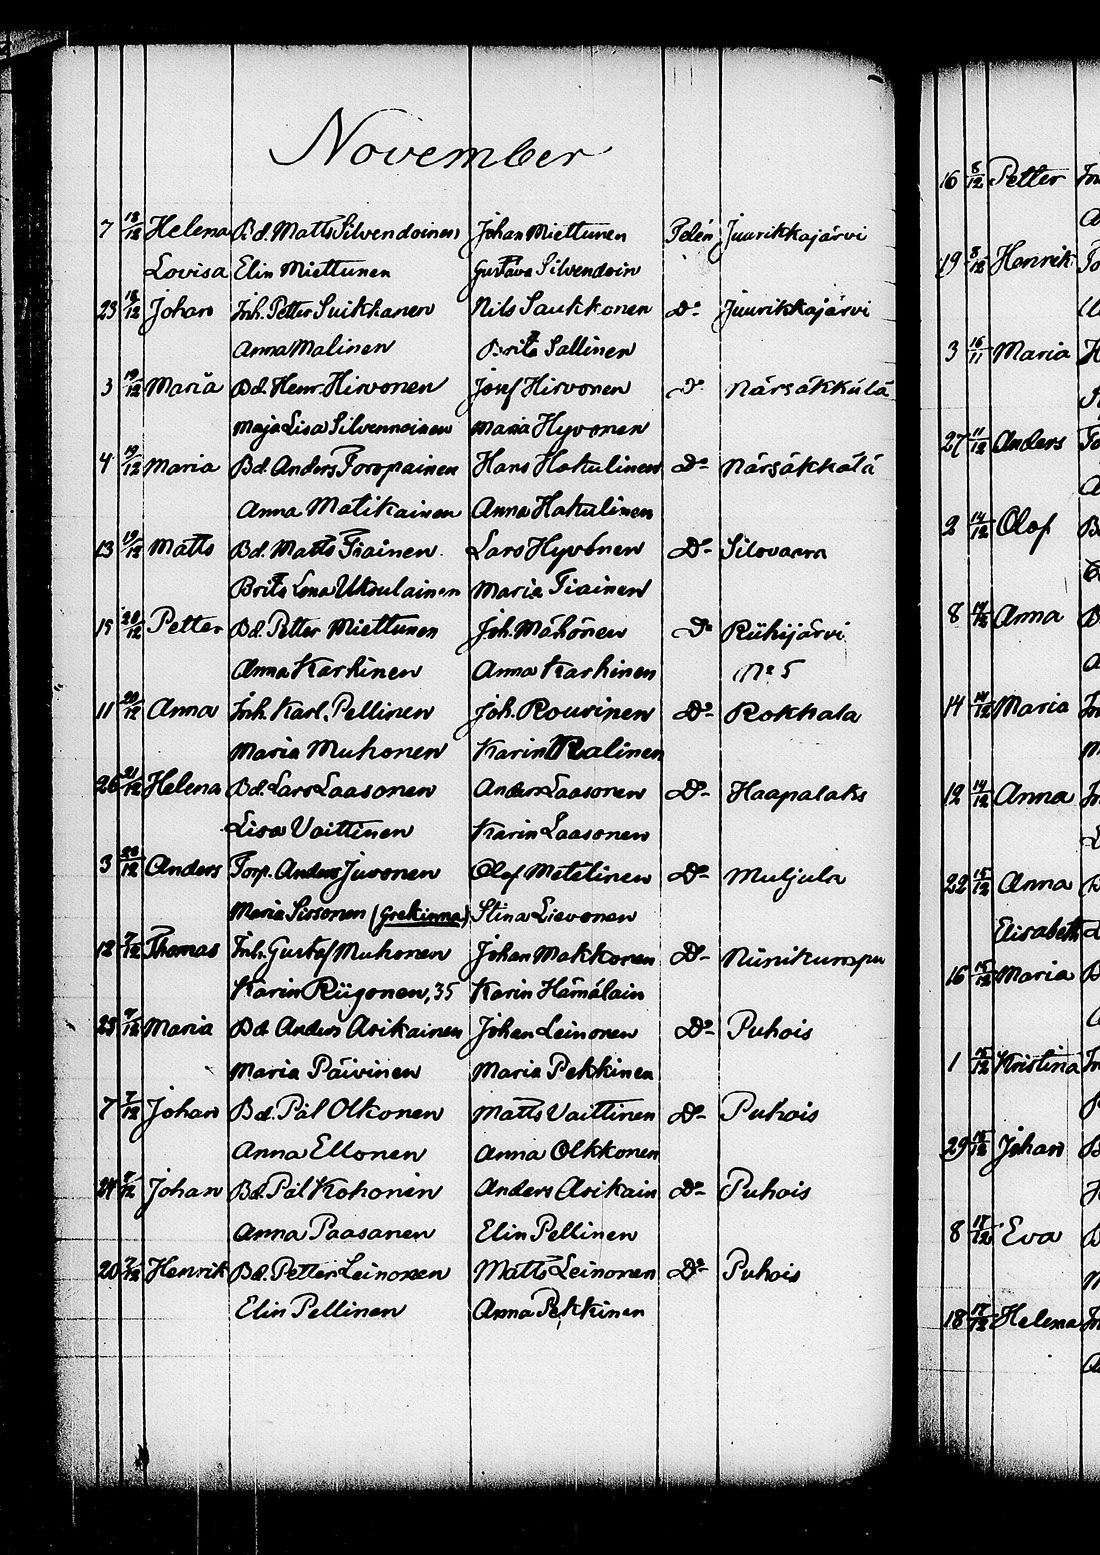 November
7 18/12 Helena Bd. Matts Silvendoinen Johan Miettunen Pelén Juurikkajärvi
Lovisa Elin Miettunen Gustava Silvendoin
23 18/12 Johan Inh. Petter Suikkanen Nils Saukkonen Do Juurikkajärvi
Anna Malinen Brita Sallinen
3 19/12 Maria Bd. Henr. Hirvonen Josef Hirvonen Do Närsäkkälä
Maja Lisa Silvennoinen Maria Hyvonen
4 19/12 Maria Bd. Anders Toropainen Hans Hakulinen Do Närsäkkälä
Anna Matikainen Anna Hakulinen
13 19/12 Matts Bd. Matts Tiainen Lars Hyvönen Do Silovaara
Brita Lena Ukoulainen Maria Tiainen
15 20/12 Petter Bd. Petter Miettunen Joh. Mähönen Do Riihijärvi
Anna Karhinen Anna Karhinen No 5
11 20/12 Anna Inh. Karl. Pellinen Joh. Rouvinen Do Rokkala
Maria Muhonen Karin Ralinen
26 21/12 Helena Bd. Lars Laasonen Anders Laasonen Do Haapalaks
Lisa Vaittinen Karin Laasonen
3 /12 Anders Torp. Anders Juvonen Olof Metelinen Do Muljula
Maria Sissonen (Grekinna) Stina Lievonen
12 7/12 Thomas Inh. Gustaf Muhonen Johan Makkonen Do
Karin Riigonen, 35 Karin Hämäläin
23 /12 Maria Bd Anders Asikainen Johan Leinonen Do Puhois
Maria Päivinen Maria Pekkinen
7 7/12 Johan Bd. Pål Olkonen Matts Vaittinen Do Puhois
Anna Ellonen Anna Olkkonen
24 /12 Johan Bd. Pål Kohonen Anders Asikain Do Puhois
Anna Paasanen Elin Pellinen
20 7/12 Henrik Bd. Petter Leinonen Matts Leinonen Do Puhois
Elin Pellinen Anna Pekkinen
16 8/12 Petter
19 8/12 Henrik
3 16/11 Maria
27 11/12 Anders
2 14/12 Olof
8 14/12 Anna
14 14/12 Maria
12 14/12 Anna
22 15/12 Anna
Elisabeth
16 15/12 Maria
1 15/12 Kristina
29 15/12 Johan
8 17/12 Eva
18 17/12 Helena